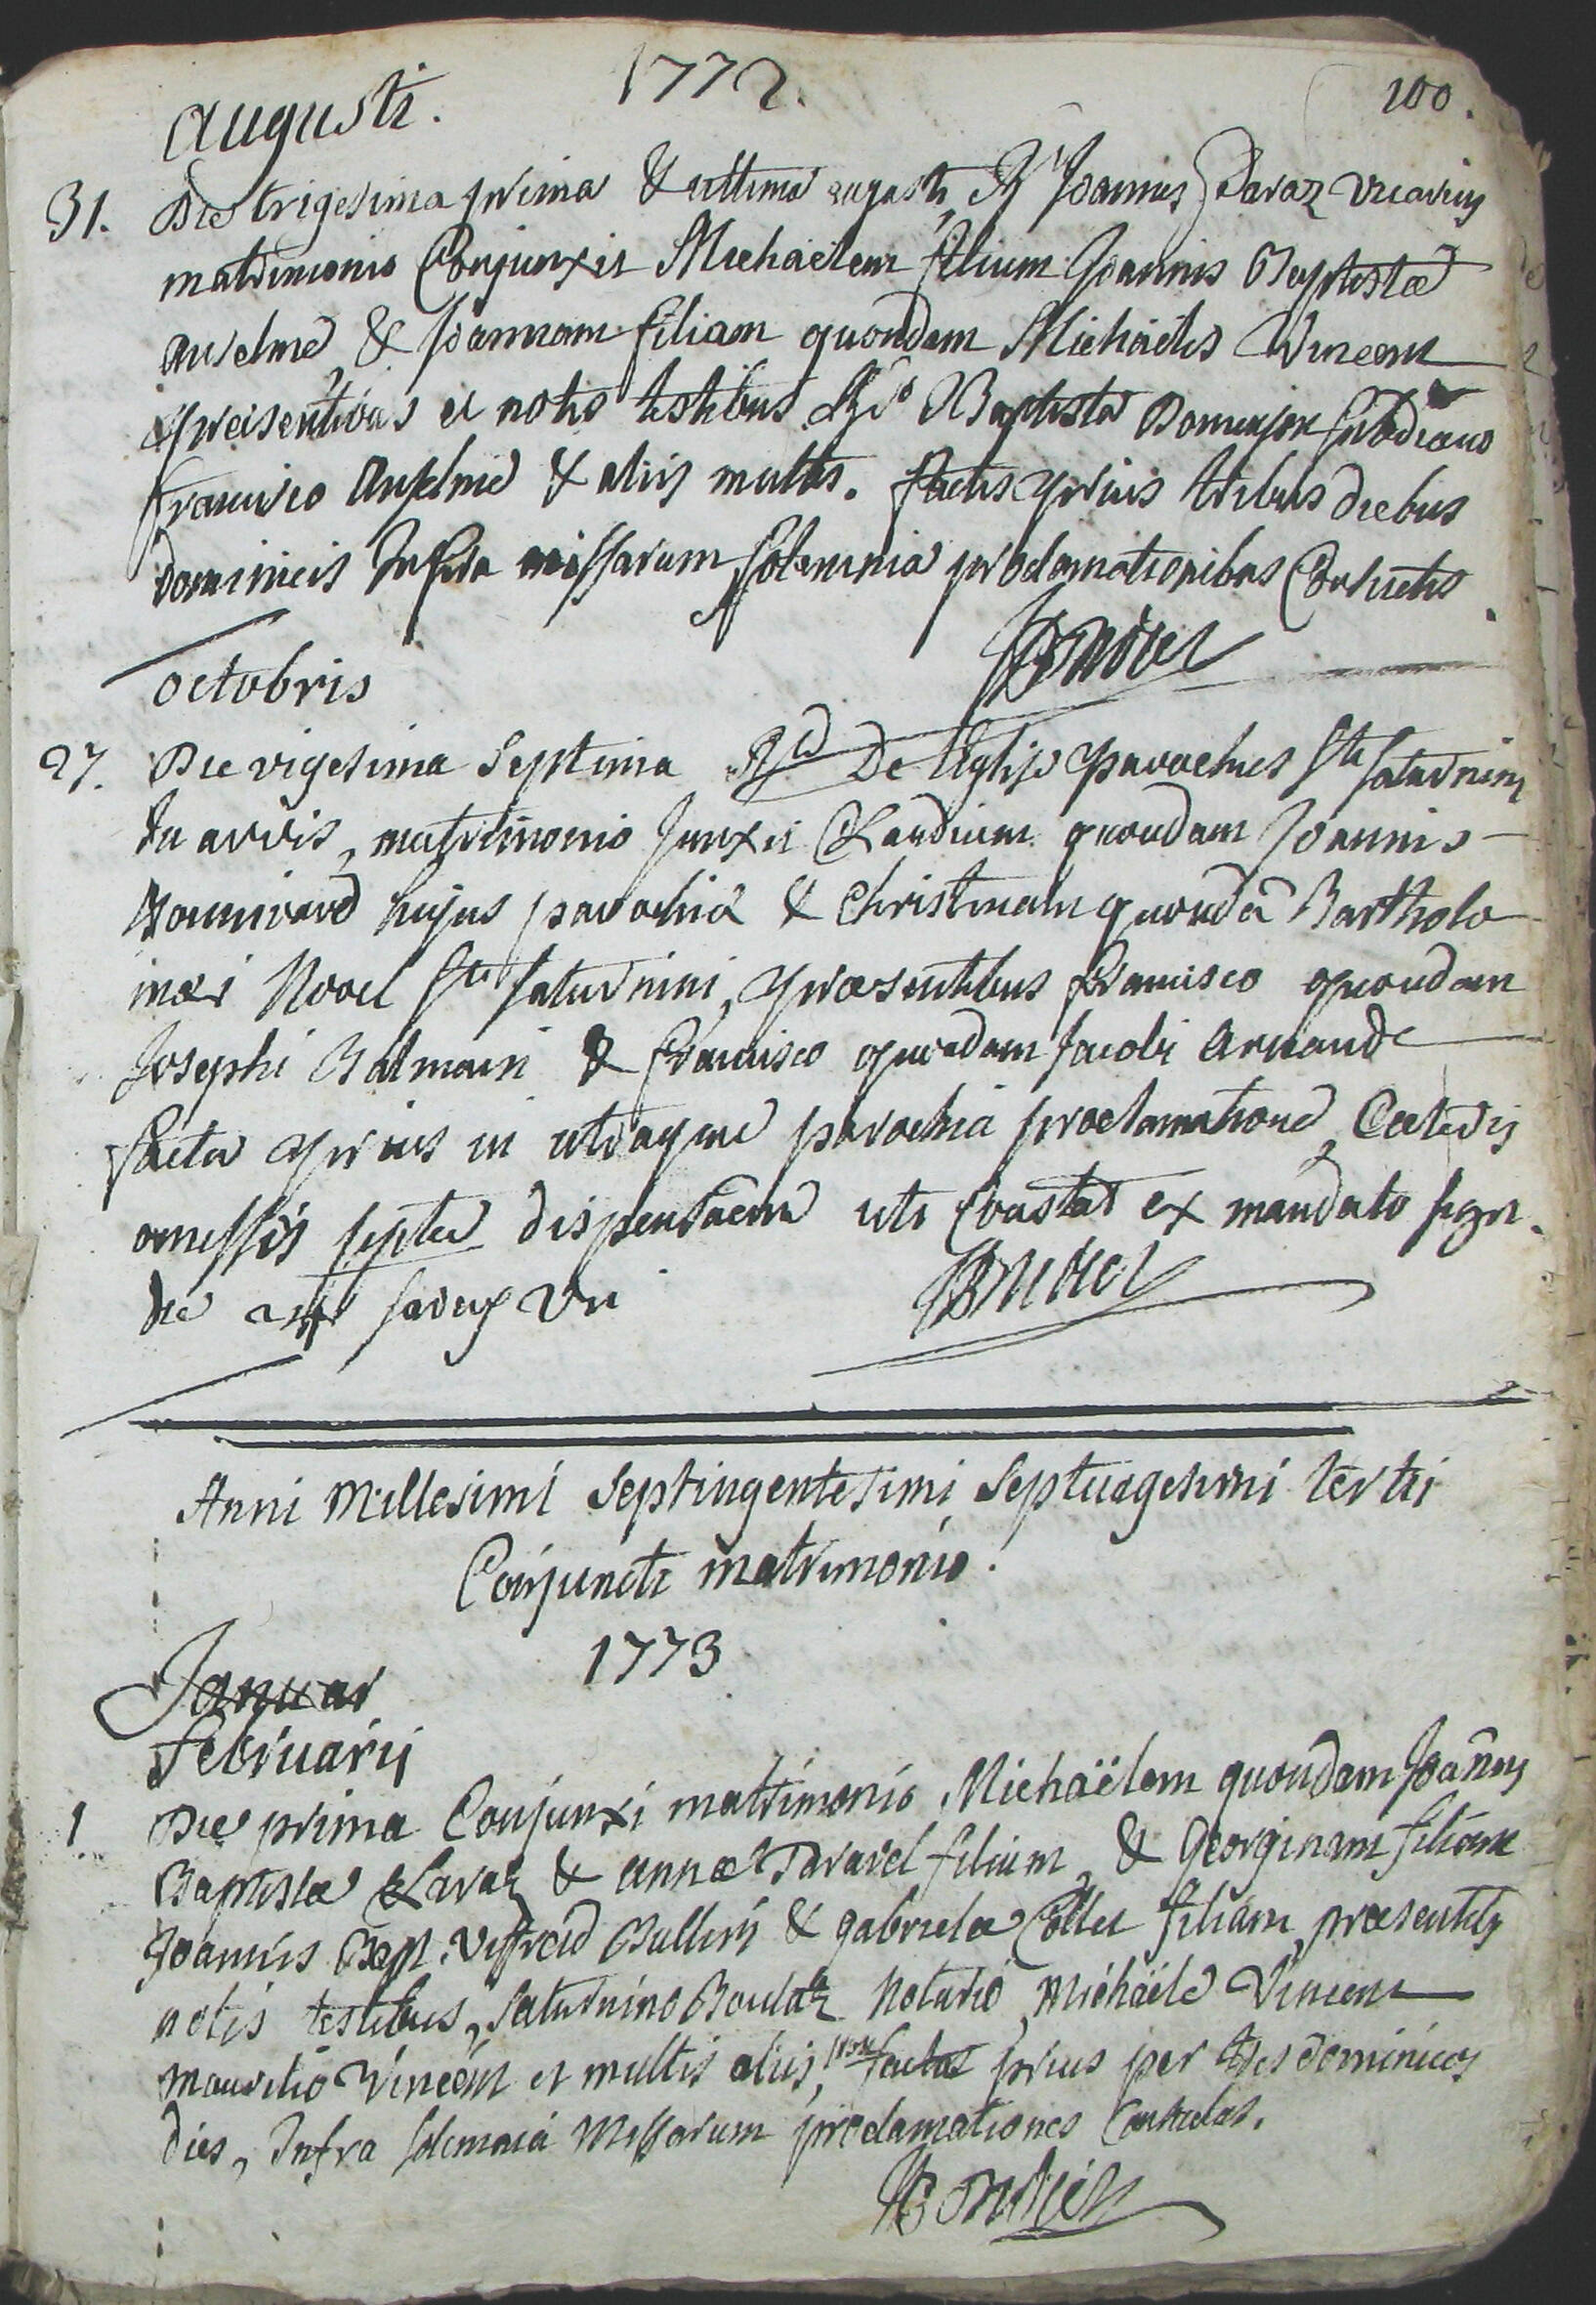 1772.
100.
augusti.
31. Die trigesima prima & ultima augusti, Rd Joannes Davaz vicarius
matrimonio Conjunxit Michaëlem filium Joannis Baptistæ
anselme, & Joannam filiam quondam Michaëlis Vincent
præsentibus et notis testibus Rdo Baptista
francisco Anselme & aliis multis. factis prius tribus diebus
dominicis Infra missarum solemnia proclamationibus Consuetis.
octobris
27. Die vigesima Septima Rd De l'Eglise parochus Sti saturnini
matrimonio Junxit Claudium quondam Joannis
hujus parochiæ & Christinam quondã Bartholo
mæi Novel Sti saturnini, præsentibus francisco quondam
Josephi Balmain & francisco quondam Jacobi Arnaud
facta prius in utraque parochia proclamatione, Cæteris
omissis dispensãem uti Constat ex mandato sign.
die
Anni Millesimi Septingentesimi Septuagesimi tertii
Conjuncti matrimonio.
1773
Januar
februarij
1 Die prima Conjunxi matrimonio Michaëlem quondam Joãnnis
Baptistæ Laraz & annæ Taravel filium, & Georginam filiam
Joannis Bapt. & gabrielæ Collet filiam, præsentibus
notis testibus, Saturnino Boulaz Notario, Michaële Vincent
mauritio Vincent et multis aliis, factas prius per tres dominicos
dies, Infra solemnia Missarum proclamationes Consuetas.